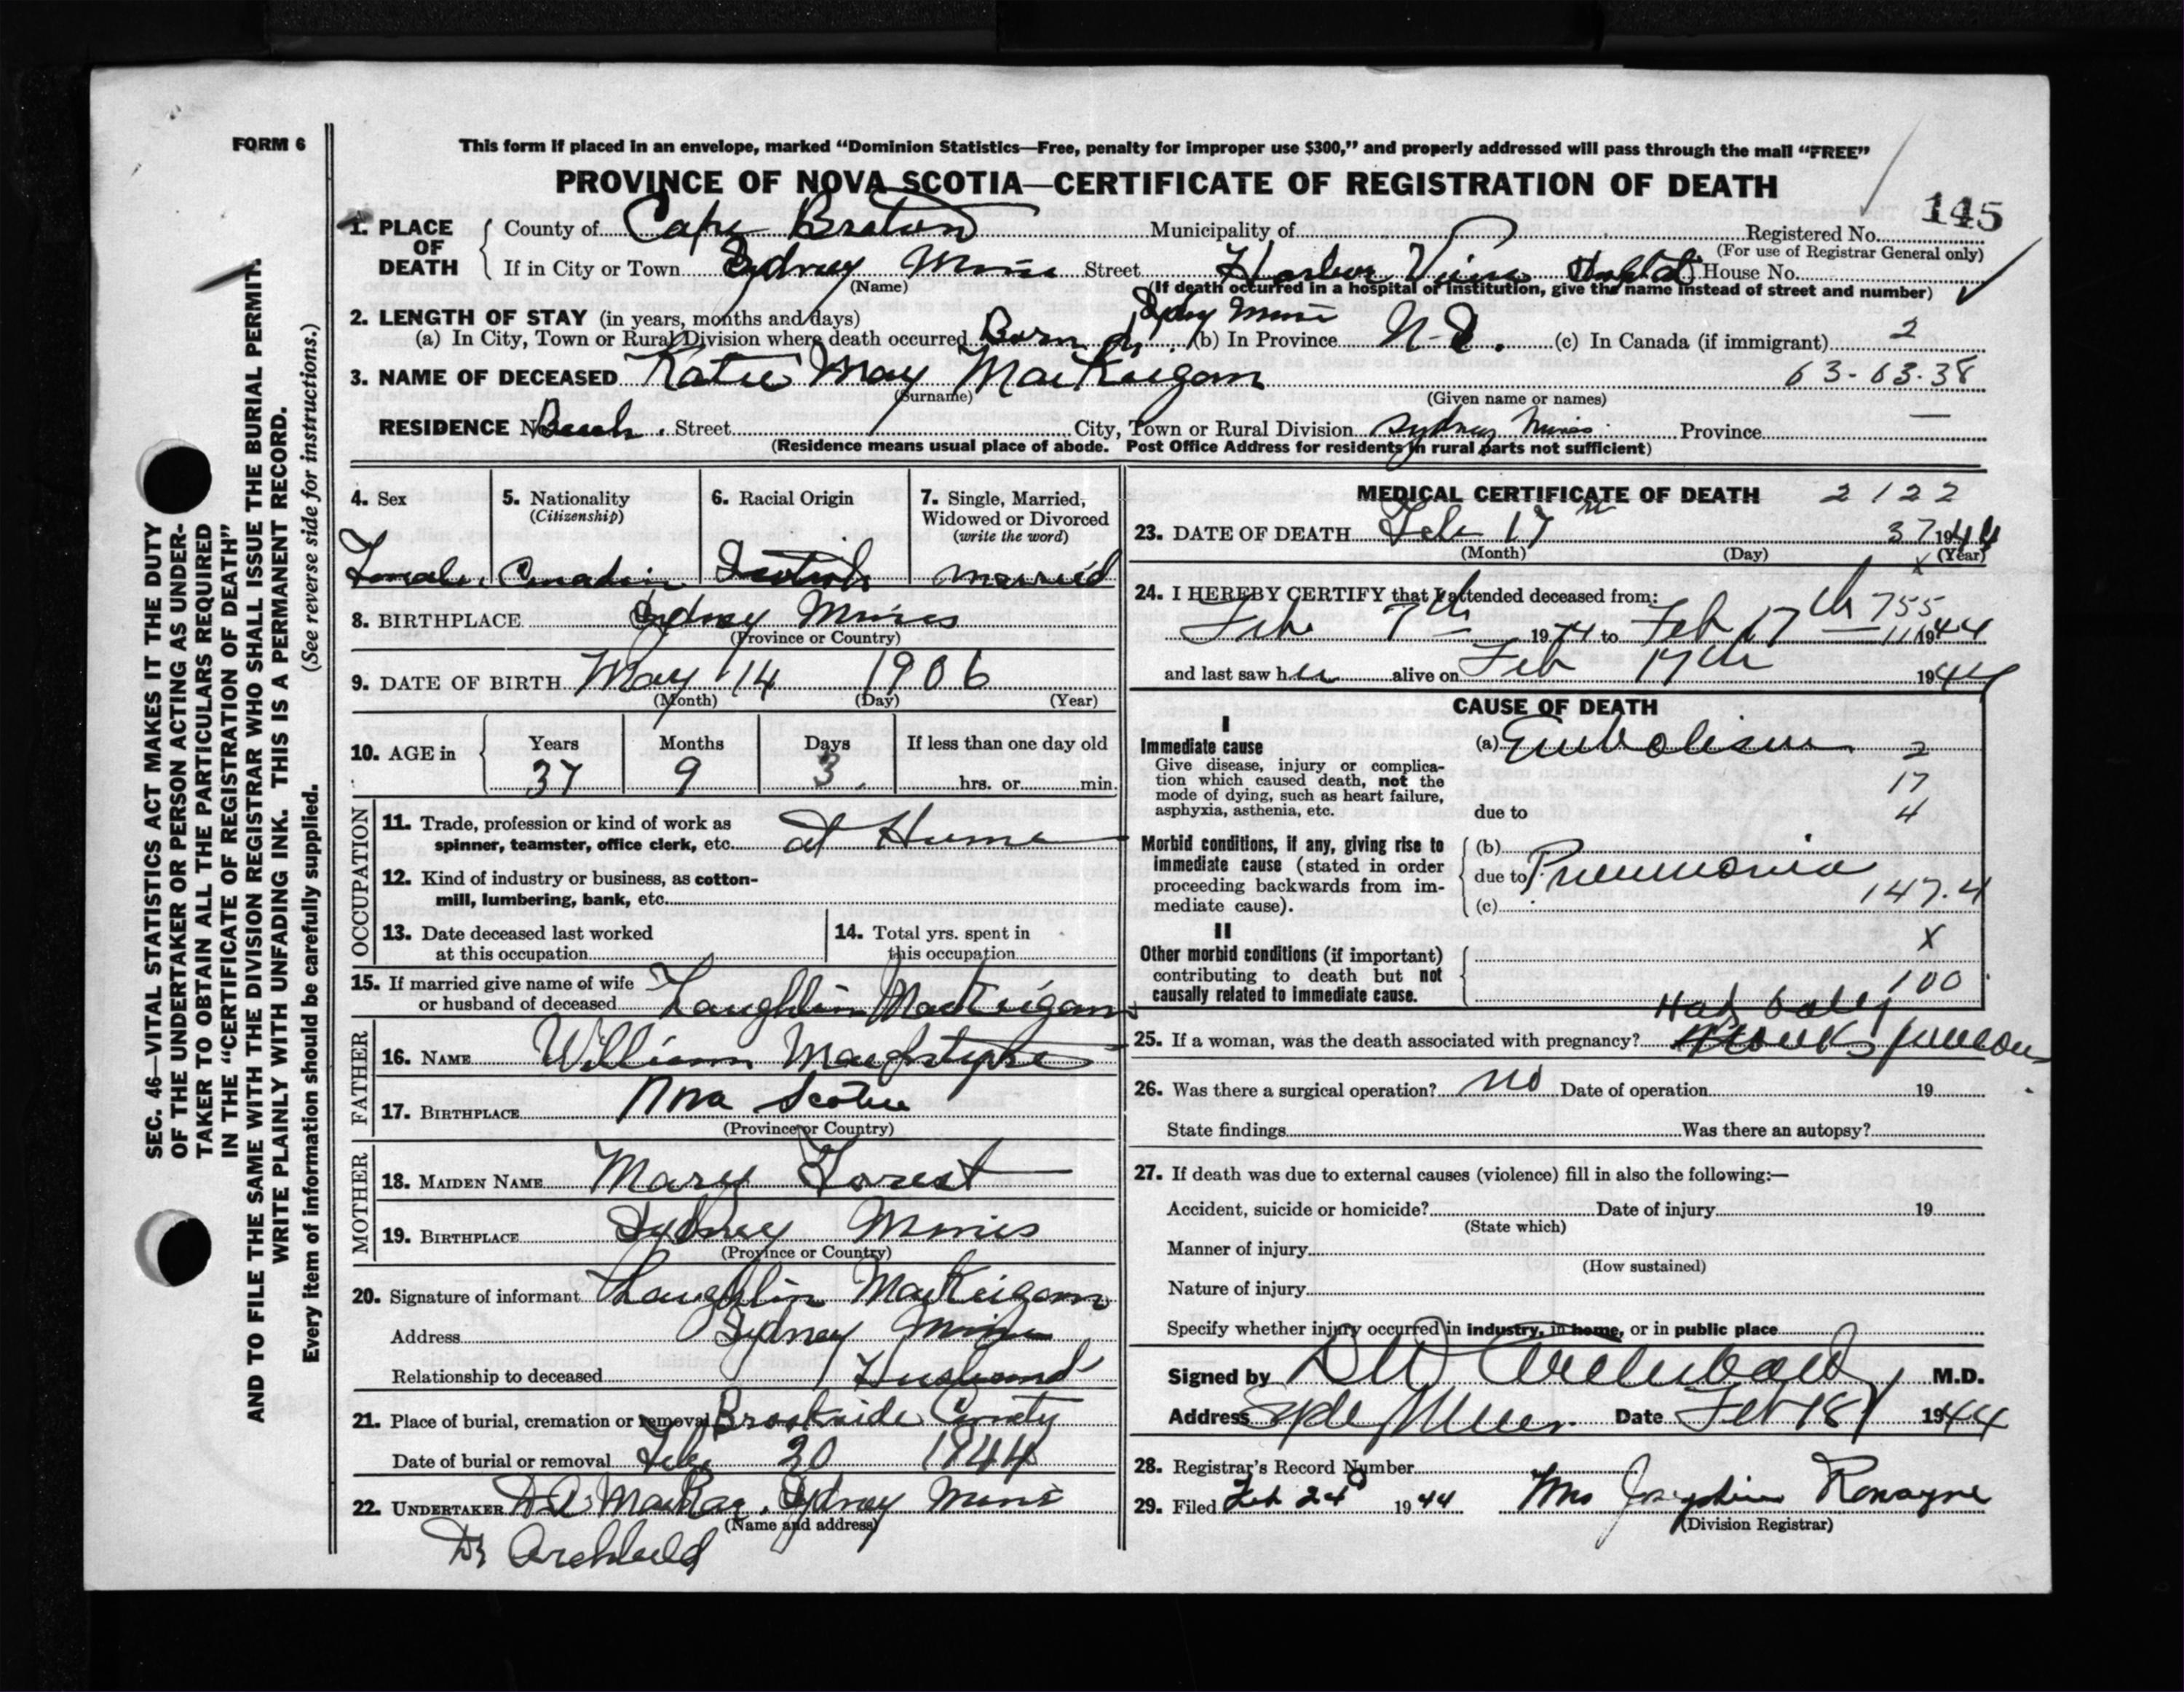 FORM 6
This form if placed in an envelope, marked “Dominion Statistics—Free, penalty for improper use $300,” and properly addressed will pass through the mail “FREE”
PROVINCE OF NOVA SCOTIA—CERTIFICATE OF REGISTRATION OF DEATH
145
1. PLACE OF DEATH
County of Cape Breton Municipality of Registered No.
(For use of Registrar General only)
If in City or Town Sydney Mines Street Harbor View Hospital House No.
(Name) (If death occurred in a hospital or institution, give the name instead of street and number)
2. LENGTH OF STAY (in years, months and days) Sydney Mines
(a) In City, Town or Rural Division where death occurred Born (b) In Province N.S. (c) In Canada (if immigrant) 2
3. NAME OF DECEASED Katie May MacKeigan 63-63-38
(Surname) (Given name or names)
RESIDENCE Beach. Street City, Town or Rural Division Sydney Mines Province —
(Residence means usual place of abode. Post Office Address for residents in rural parts not sufficient)
4. Sex
Female
5. Nationality
(Citizenship)
Canadian
6. Racial Origin
Scotch
7. Single, Married,
Widowed or Divorced
(write the word)
married
8. BIRTHPLACE Sydney Mines
(Province or Country)
9. DATE OF BIRTH May 14 1906
(Month) (Day) (Year)
10. AGE in
Years Months Days If less than one day old
37 9 3 hrs. or min.
OCCUPATION
11. Trade, profession or kind of work as
spinner, teamster, office clerk, etc. at Home
12. Kind of industry or business, as cotton-
mill, lumbering, bank, etc.
13. Date deceased last worked
at this occupation
14. Total yrs. spent in
this occupation
15. If married give name of wife
or husband of deceased Laughlin MacKeigan
FATHER
16. NAME William
17. BIRTHPLACE Nova Scotia
(Province or Country)
MOTHER
18. MAIDEN NAME Mary Forest
19. BIRTHPLACE Sydney Mines
(Province or Country)
20. Signature of informant Laughlin MacKeigan
Address Sydney Mines
Relationship to deceased Husband
21. Place of burial, cremation or removal Brookside
Date of burial or removal Feb 20 1944
22. UNDERTAKER D.A. MacRae, Sydney Mines
(Name and address)
Dr Archibald
MEDICAL CERTIFICATE OF DEATH 2122
23. DATE OF DEATH Feb 17 37 1944
(Month) (Day) (Year)
x
24. I HEREBY CERTIFY that I attended deceased from: 755
Feb 7th 1944 to Feb 17th 111 1944
and last saw her alive on Feb 17th 1944
CAUSE OF DEATH
I
Immediate cause
Give disease, injury or complica-
tion which caused death, not the
mode of dying, such as heart failure,
asphyxia, asthenia, etc.
(a) Embolism 2
17
due to 4
Morbid conditions, if any, giving rise to
immediate cause (stated in order
proceeding backwards from im-
mediate cause).
(b)
due to Pneumonia
147.4
(c)
II
Other morbid conditions (if important)
contributing to death but not
causally related to immediate cause.
X
100
25. If a woman, was the death associated with pregnancy? Had baby
26. Was there a surgical operation? no Date of operation 19
State findings Was there an autopsy?
27. If death was due to external causes (violence) fill in also the following:—
Accident, suicide or homicide? Date of injury 19
(State which)
Manner of injury
(How sustained)
Nature of injury
Specify whether injury occurred in industry, in home, or in public place
Signed by DW Archibald M.D.
Address Syd Mines Date Feb 18 1944
28. Registrar's Record Number
29. Filed Feb 24 1944 Mrs Josephine Ronayne
(Division Registrar)
SEC. 46—VITAL STATISTICS ACT MAKES IT THE DUTY
OF THE UNDERTAKER OR PERSON ACTING AS UNDER-
TAKER TO OBTAIN ALL THE PARTICULARS REQUIRED
IN THE “CERTIFICATE OF REGISTRATION OF DEATH”
AND TO FILE THE SAME WITH THE DIVISION REGISTRAR WHO SHALL ISSUE THE BURIAL PERMIT.
WRITE PLAINLY WITH UNFADING INK. THIS IS A PERMANENT RECORD.
Every item of information should be carefully supplied. (See reverse side for instructions.)